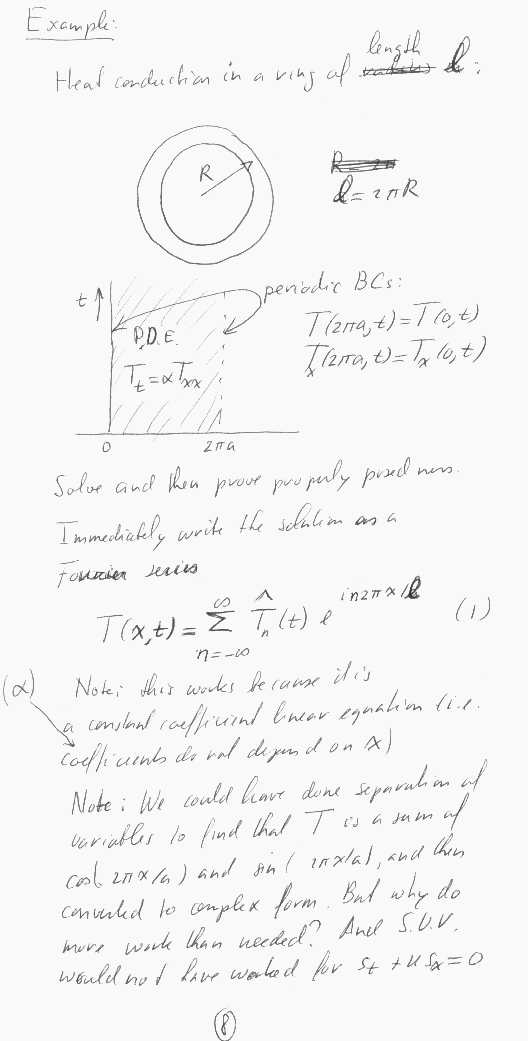 Example:
Heat conduction in a ring of length l:
R
l = 2πR
t
periodic BCs:
P.D.E.
T(2πa,t) = T(0,t)
T_t = αT_xx
T_x(2πa,t) = T_x(0,t)
0
2πa
Solve and then prove properly posedness.
Immediately write the solution as a
Fourier series
T(x,t) = Σ_{n=-∞}^{∞} T̂_n(t) e^{in2πx/l} (1)
(α) Note: this works because it is
a constant coefficient linear equation (i.e.
coefficients do not depend on x)
Note: We could have done separation of
variables to find that T is a sum of
cos(2πx/a) and sin(2πx/a), and then
converted to complex form. But why do
more work than needed? And S.O.V.
would not have worked for s_t + u s_x = 0
8